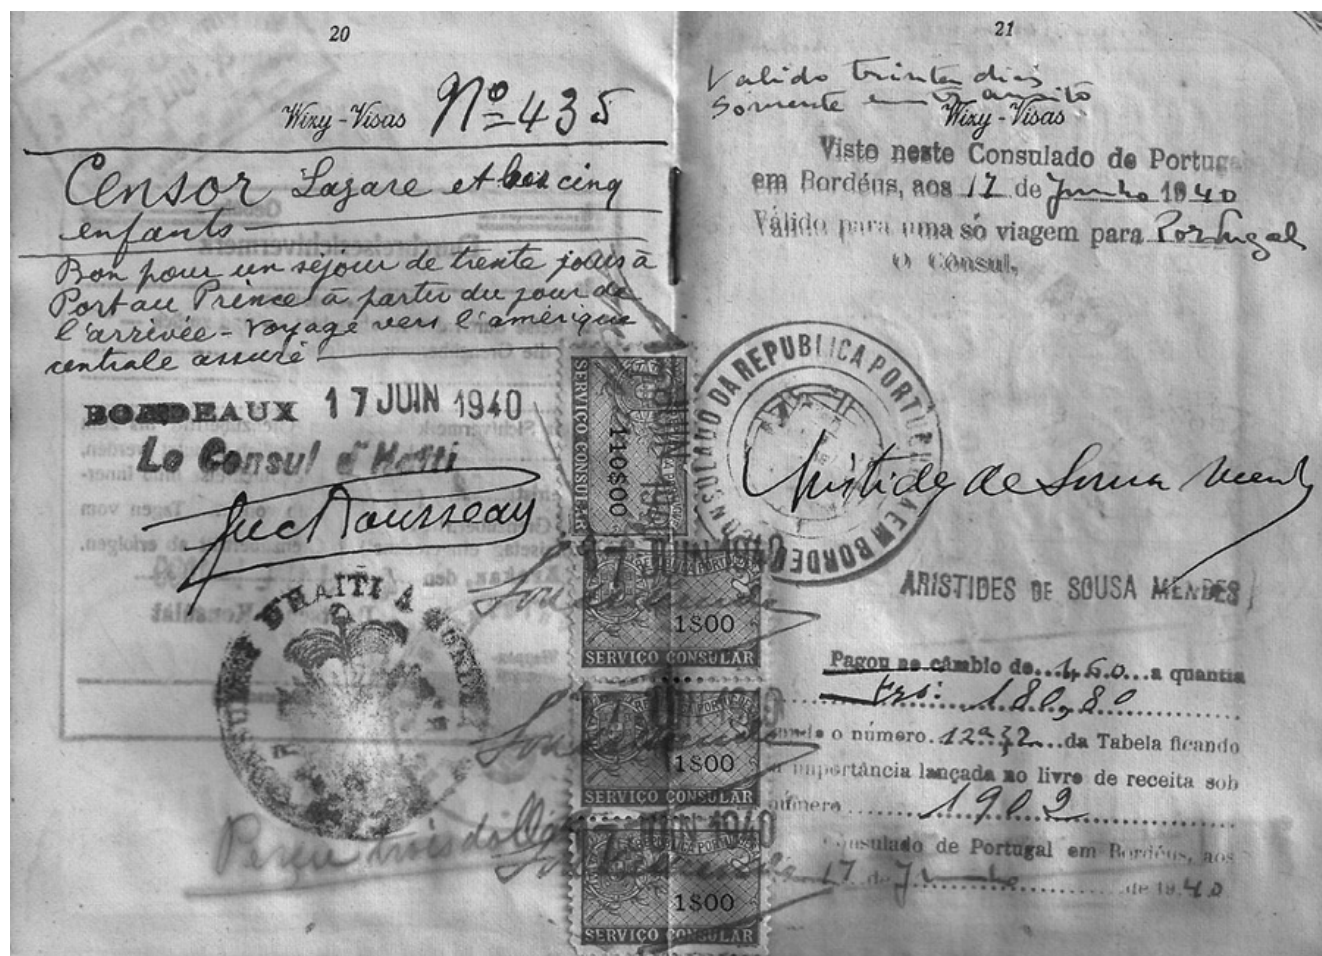 20
Wizy-Visas Nº 435
Censor Lazare et ses cinq
enfants
Bon pour un séjour de trente jours à
Port au Prince à partir du jour de
l'arrivée - Voyage vers l'amérique
centrale assuré
BORDEAUX 17 JUIN 1940
Le Consul d'Haïti
D'HAITI A
Perçu trois dollars
SERVICO CONSULAR
110$00
17 JUIN 1940
Sousa Mendes
1$00
SERVIÇO CONSULAR
17 JUIN 1940
Sousa Mendes
1$00
SERVIÇO CONSULAR
17 JUIN 1940
Sousa Mendes
1$00
SERVIÇO CONSULAR
21
Valido trinta dias
Somente em transito
Wizy-Visas
Visto neste Consulado de Portugal
em Bordéus, aos 17 de Junho 1940
Válido para uma só viagem para Portugal
O Consul,
CONSULADO DA REPUBLICA PORTUGUESA EM BORDEOS
Aristides de Sousa Mendes
ARISTIDES DE SOUSA MENDES
Pagou ao câmbio de...460...a quantia
Frs: 180,80
o número.12........da Tabela ficando
a importância lançada no livro de receita sob
número ......1902......
Consulado de Portugal em Bordéus, aos
17 de Junho de 1940